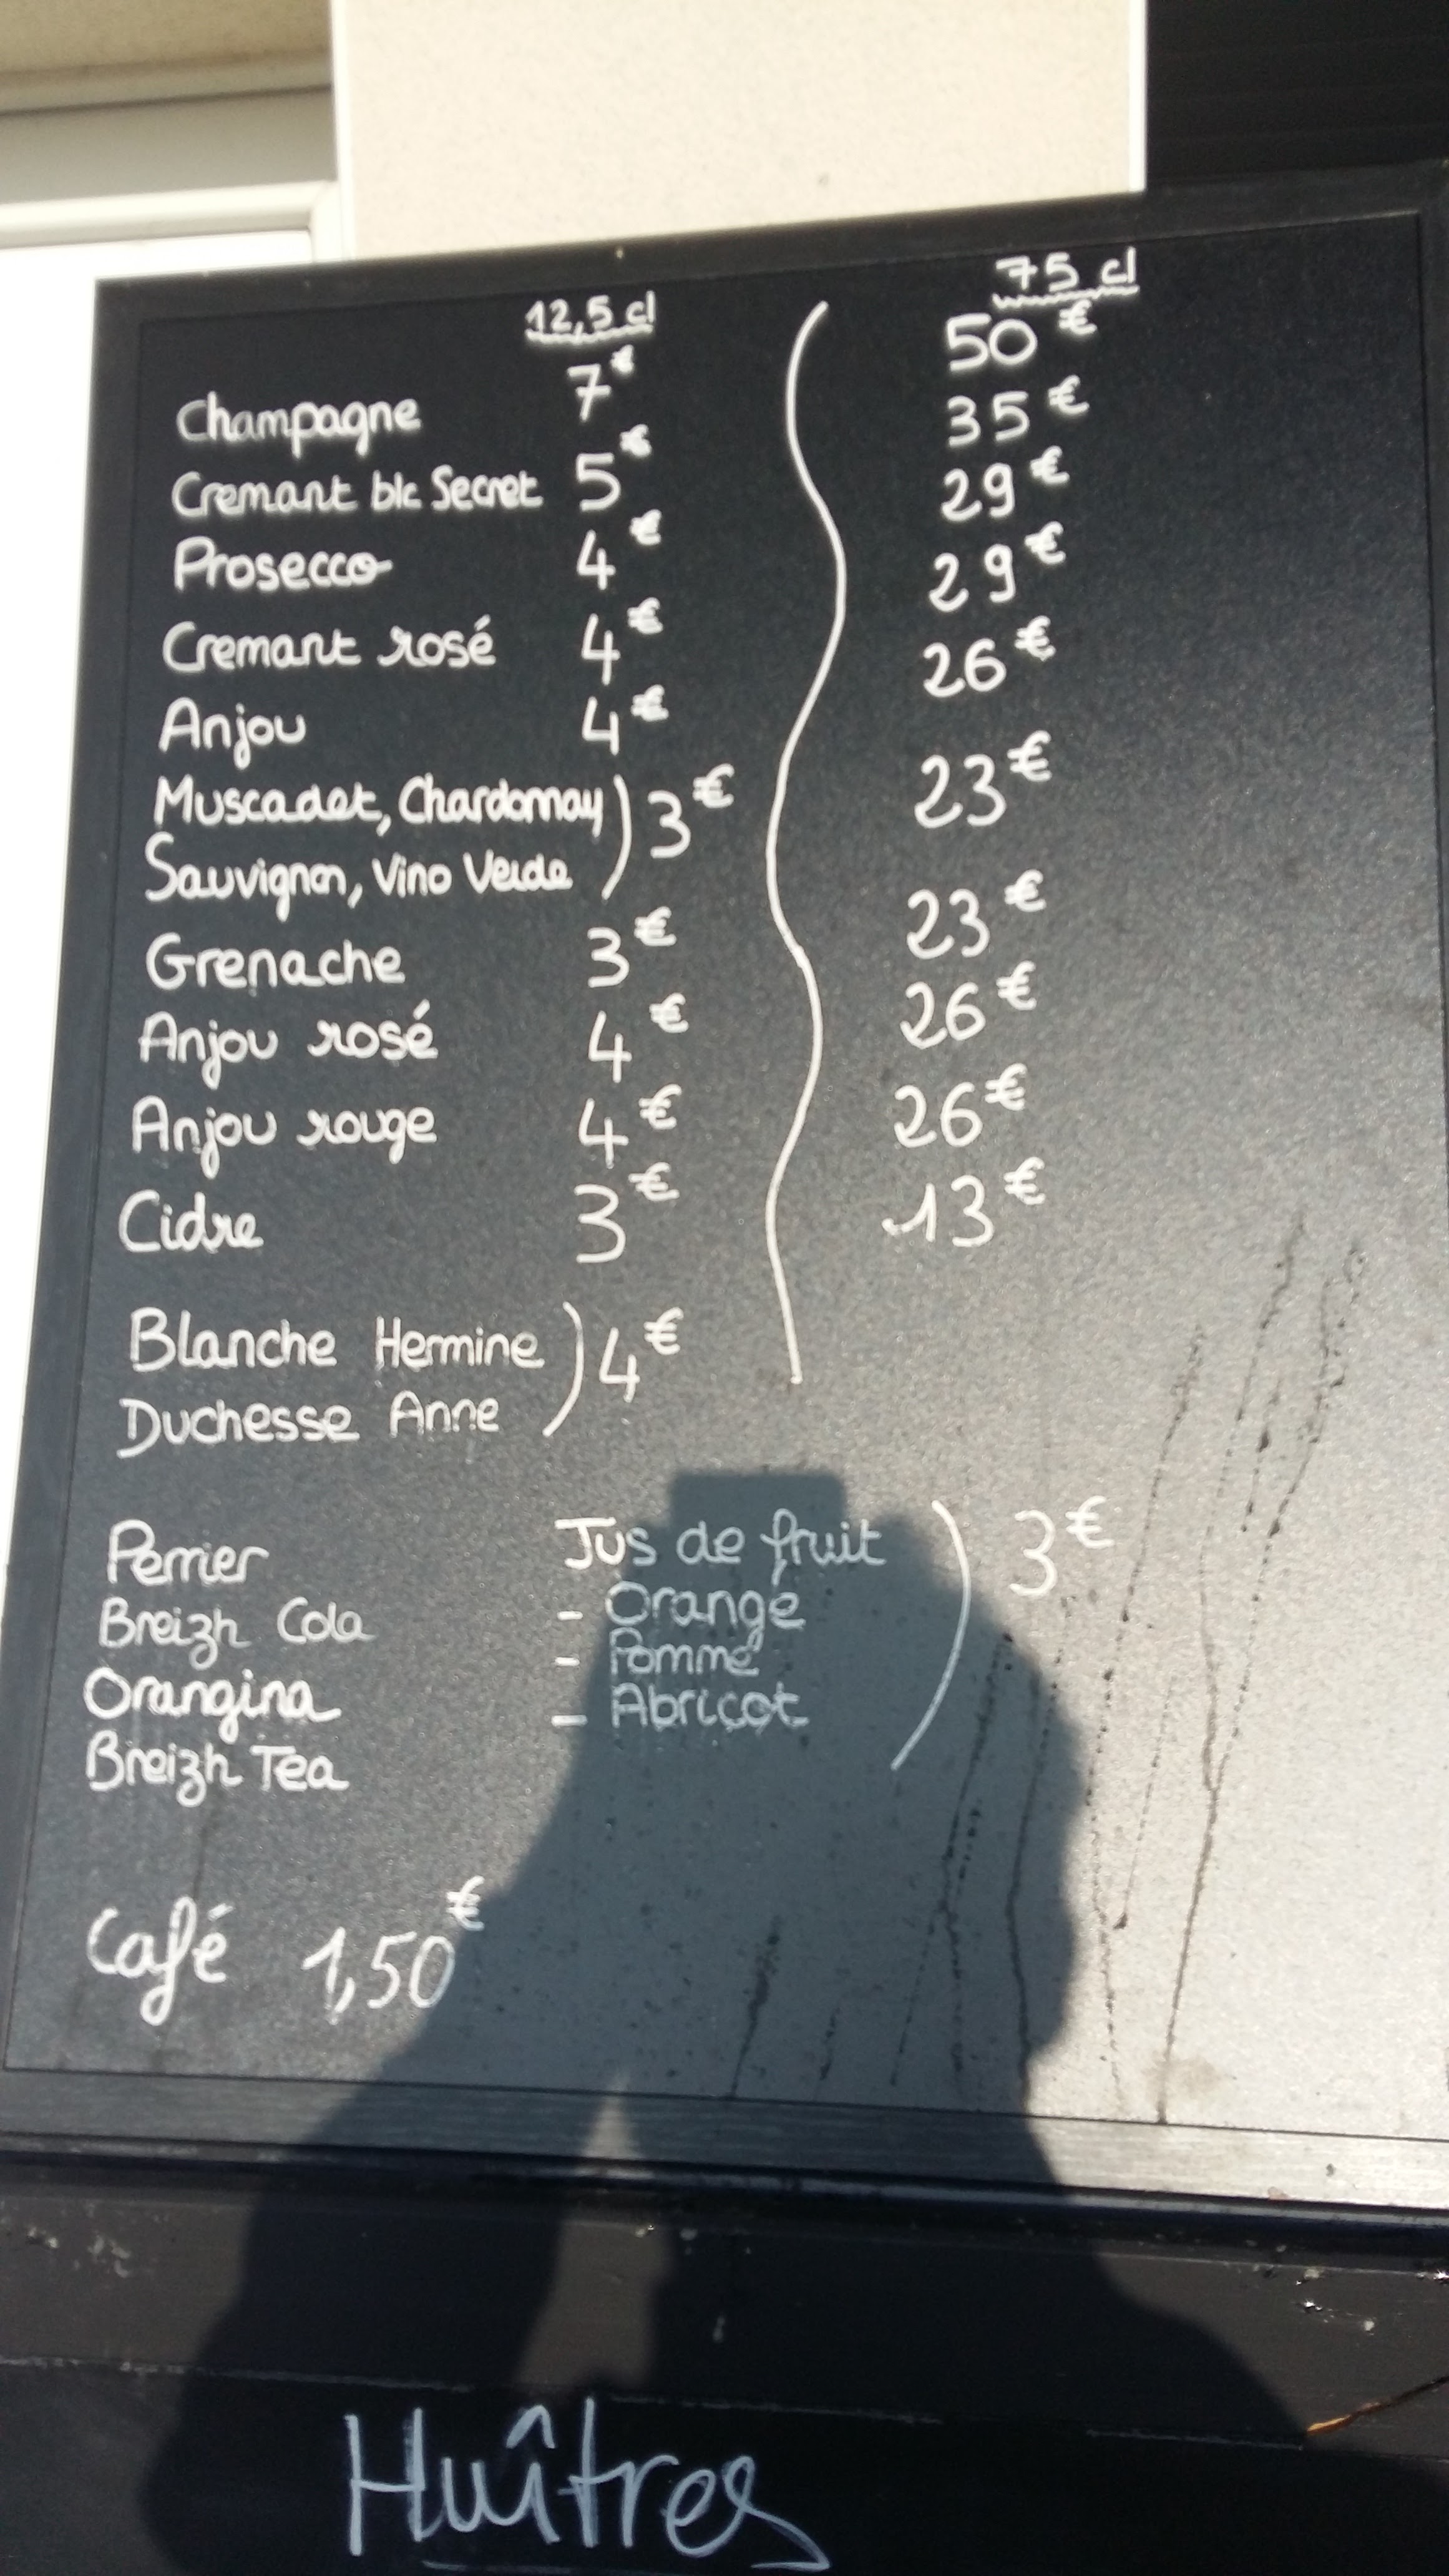 12,5 cl 75 cl
Champagne 7€ 50€
Cremant blc Secret 5€ 35€
Prosecco 4€ 29€
Cremant rosé 4€ 29€
Anjou 4€ 26€
Muscadet, Chardonnay ) 3€ 23€
Sauvignon, Vino Verde
Grenache 3€ 23€
Anjou rosé 4€ 26€
Anjou rouge 4€ 26€
Cidre 3€ 13€
Blanche Hermine ) 4€
Duchesse Anne
Perrier Jus de fruit ) 3€
Breizh Cola - Orange
Orangina - Pomme
Breizh Tea - Abricot
Café 1,50€
Huîtres